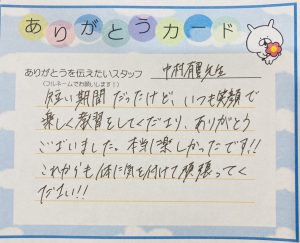 ありがとうカード
ありがとうを伝えたいスタッフ
(フルネームでお願いします!)
中村 先生
短い期間だったけど、いつも笑顔で
楽しく教習をしてくださり、ありがとう
ございました。本当に楽しかったです!!
これからも体に気を付けて頑張ってく
ださい!!